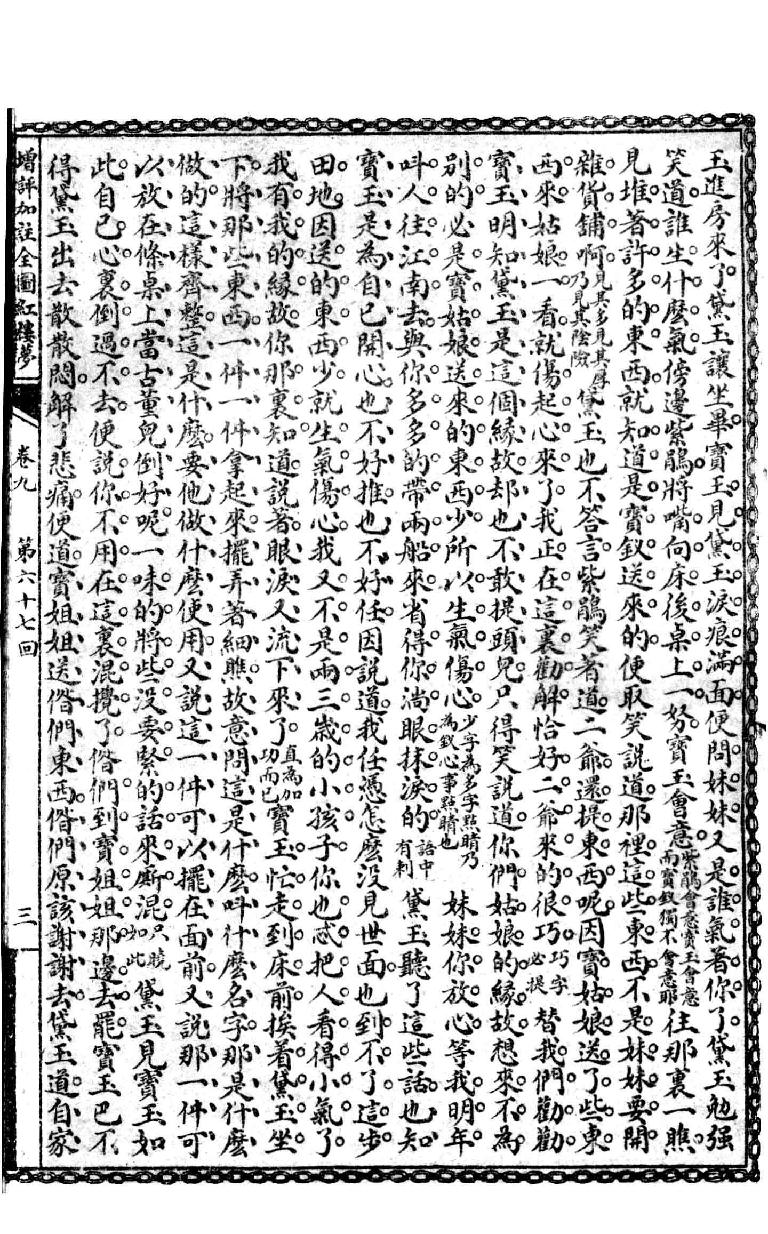 玉進房來了黛玉讓坐畢寶玉見黛玉淚痕滿面便問妹妹又是誰氣著你了黛玉勉强
笑道誰生什麽氣傍邊紫鵑將嘴向床後桌上一努寶玉會意紫鵑會意寶玉會意而寶釵獨不會意耶往那裏一瞧
見堆著許多的東西就知道是寶釵送來的便取笑說道那裡這些東西不是妹妹要開
雜貨舖啊見其多見其厚乃見其陰險黛玉也不答言紫鵑笑著道二爺還提東西呢因寶姑娘送了些東
西來姑娘一看就傷起心來了我正在這裏勸解恰好二爺來的很巧巧字必提替我們勸勸
寶玉明知黛玉是這個緣故却也不敢提頭兒只得笑說道你們姑娘的緣故想來不為
別的必是寶姑娘送來的東西少所以生氣傷心少字為多字點睛乃為釵心事點睛也妹妹你放心等我明年
呌人往江南去與你多多的帶兩船來省得你淌眼抹淚的語中有刺黛玉聽了這些話也知
寶玉是為自己開心也不好推也不好任因說道我任憑怎麽没見世面也到不了這步
田地因送的東西少就生氣傷心我又不是兩三歲的小孩子你也忒把人看得小氣了
我有我的緣故你那裏知道說著眼淚又流下來了直為加功而已寶玉忙走到床前挨着黛玉坐
下將那些東西一件一件拿起來擺弄著細瞧故意問這是什麽呌什麽名字那是什麽
做的這樣齊整這是什麽要他做什麽使用又說這一件可以擺在面前又說那一件可
以放在條桌上當古董兒倒好呢一味的將些没要緊的話來厮混只曉如此黛玉見寶玉如
此自己心裏倒過不去便說你不用在這裏混攪了偺們到寶姐姐那邊去罷寶玉巴不
得黛玉出去散散悶解了悲痛便道寶姐姐送偺們東西偺們原該謝謝去黛玉道自家
增評加註全圖紅樓夢 卷九 第六十七回 三